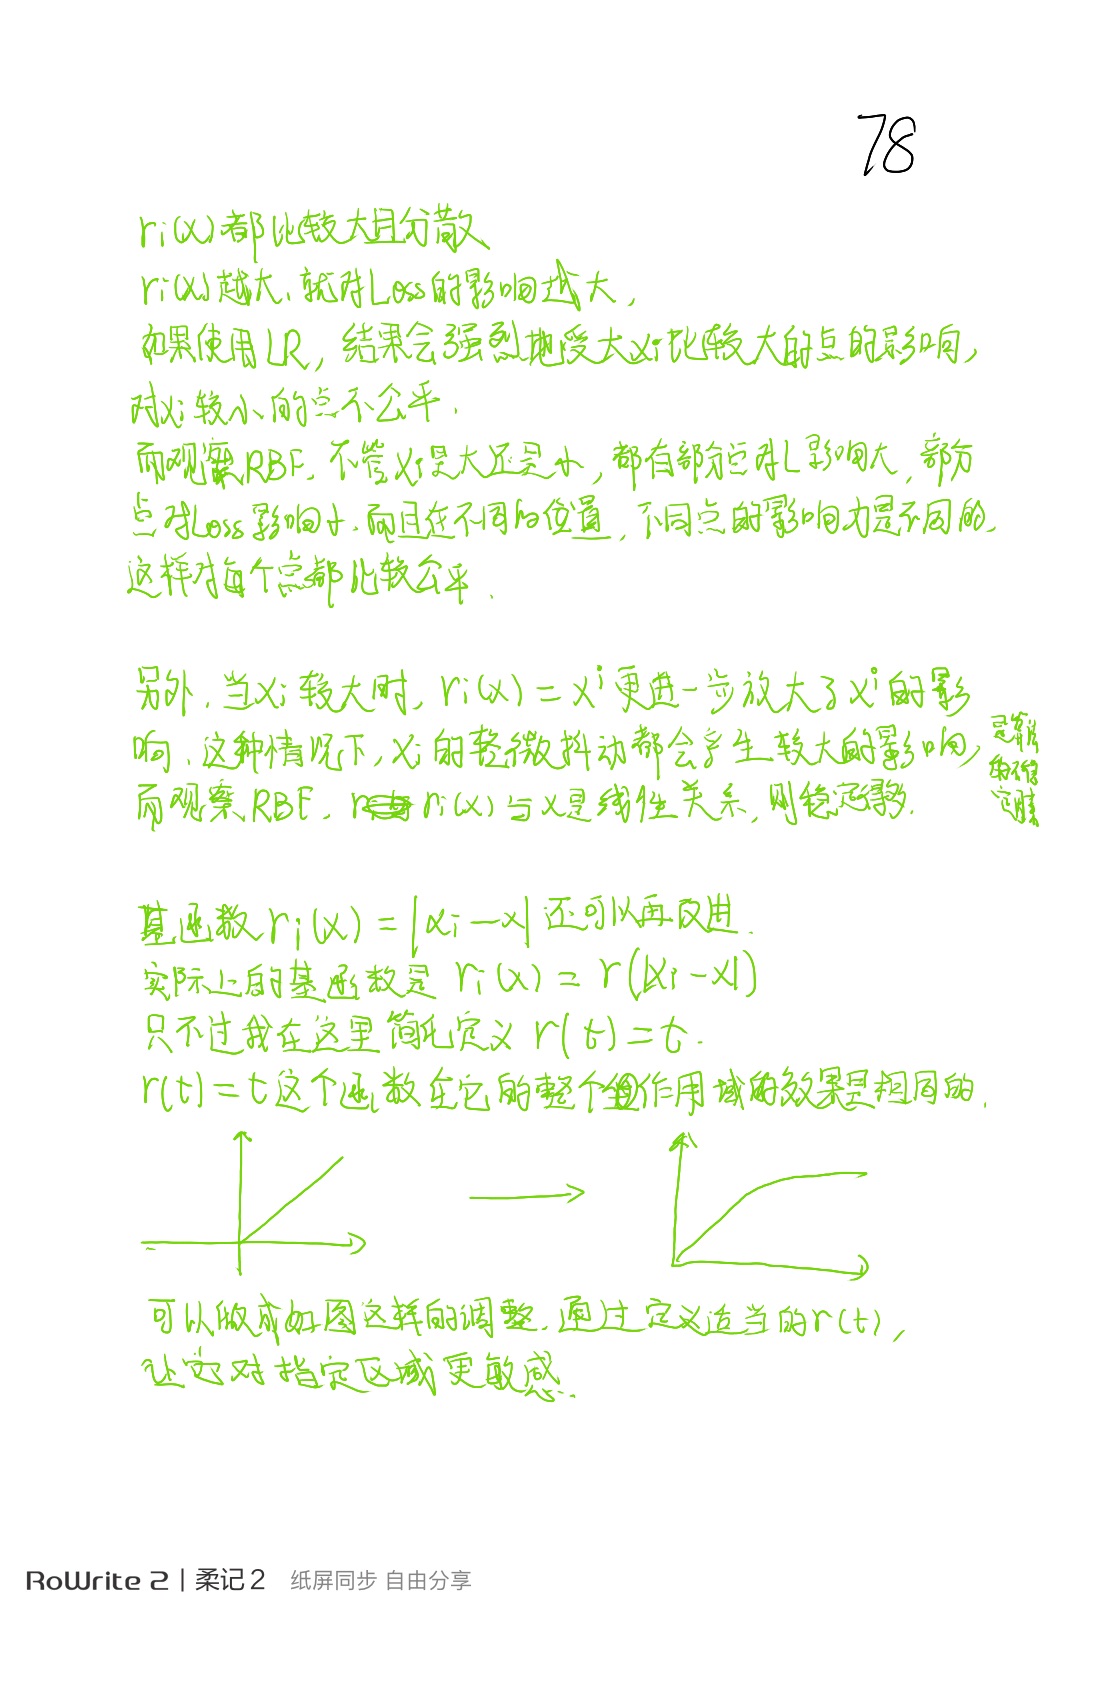 78
ri(x)都比较大且分散、
ri(x)越大、就对Loss的影响越大,
如果使用LR, 结果会强烈地受大xi比较大的点的影响,
对xi较小的点不公平.
而观察RBF, 不管xi是大还是小, 都有部分点对L影响大, 部分
点对Loss影响小. 而且在不同的位置, 不同点的影响力是不同的,
这样对每个点都比较公平.
另外, 当xi较大时, ri(x)=xⁱ更进一步放大了xⁱ的影
响、这种情况下, xi的轻微抖动都会产生较大的影响,
而观察RBF, ri(x)与x是线性关系, 则稳定得多.
基函数ri(x)=|xi-x|还可以再改进.
实际上的基函数是 ri(x)=r(|xi-x|)
只不过我在这里简化定义 r(t)=t.
r(t)=t这个函数在它的整个作用域的效果是相同的.
可以做成如图这样的调整. 通过定义适当的r(t),
让它对指定区域更敏感.
RoWrite 2 | 柔记2 纸屏同步 自由分享